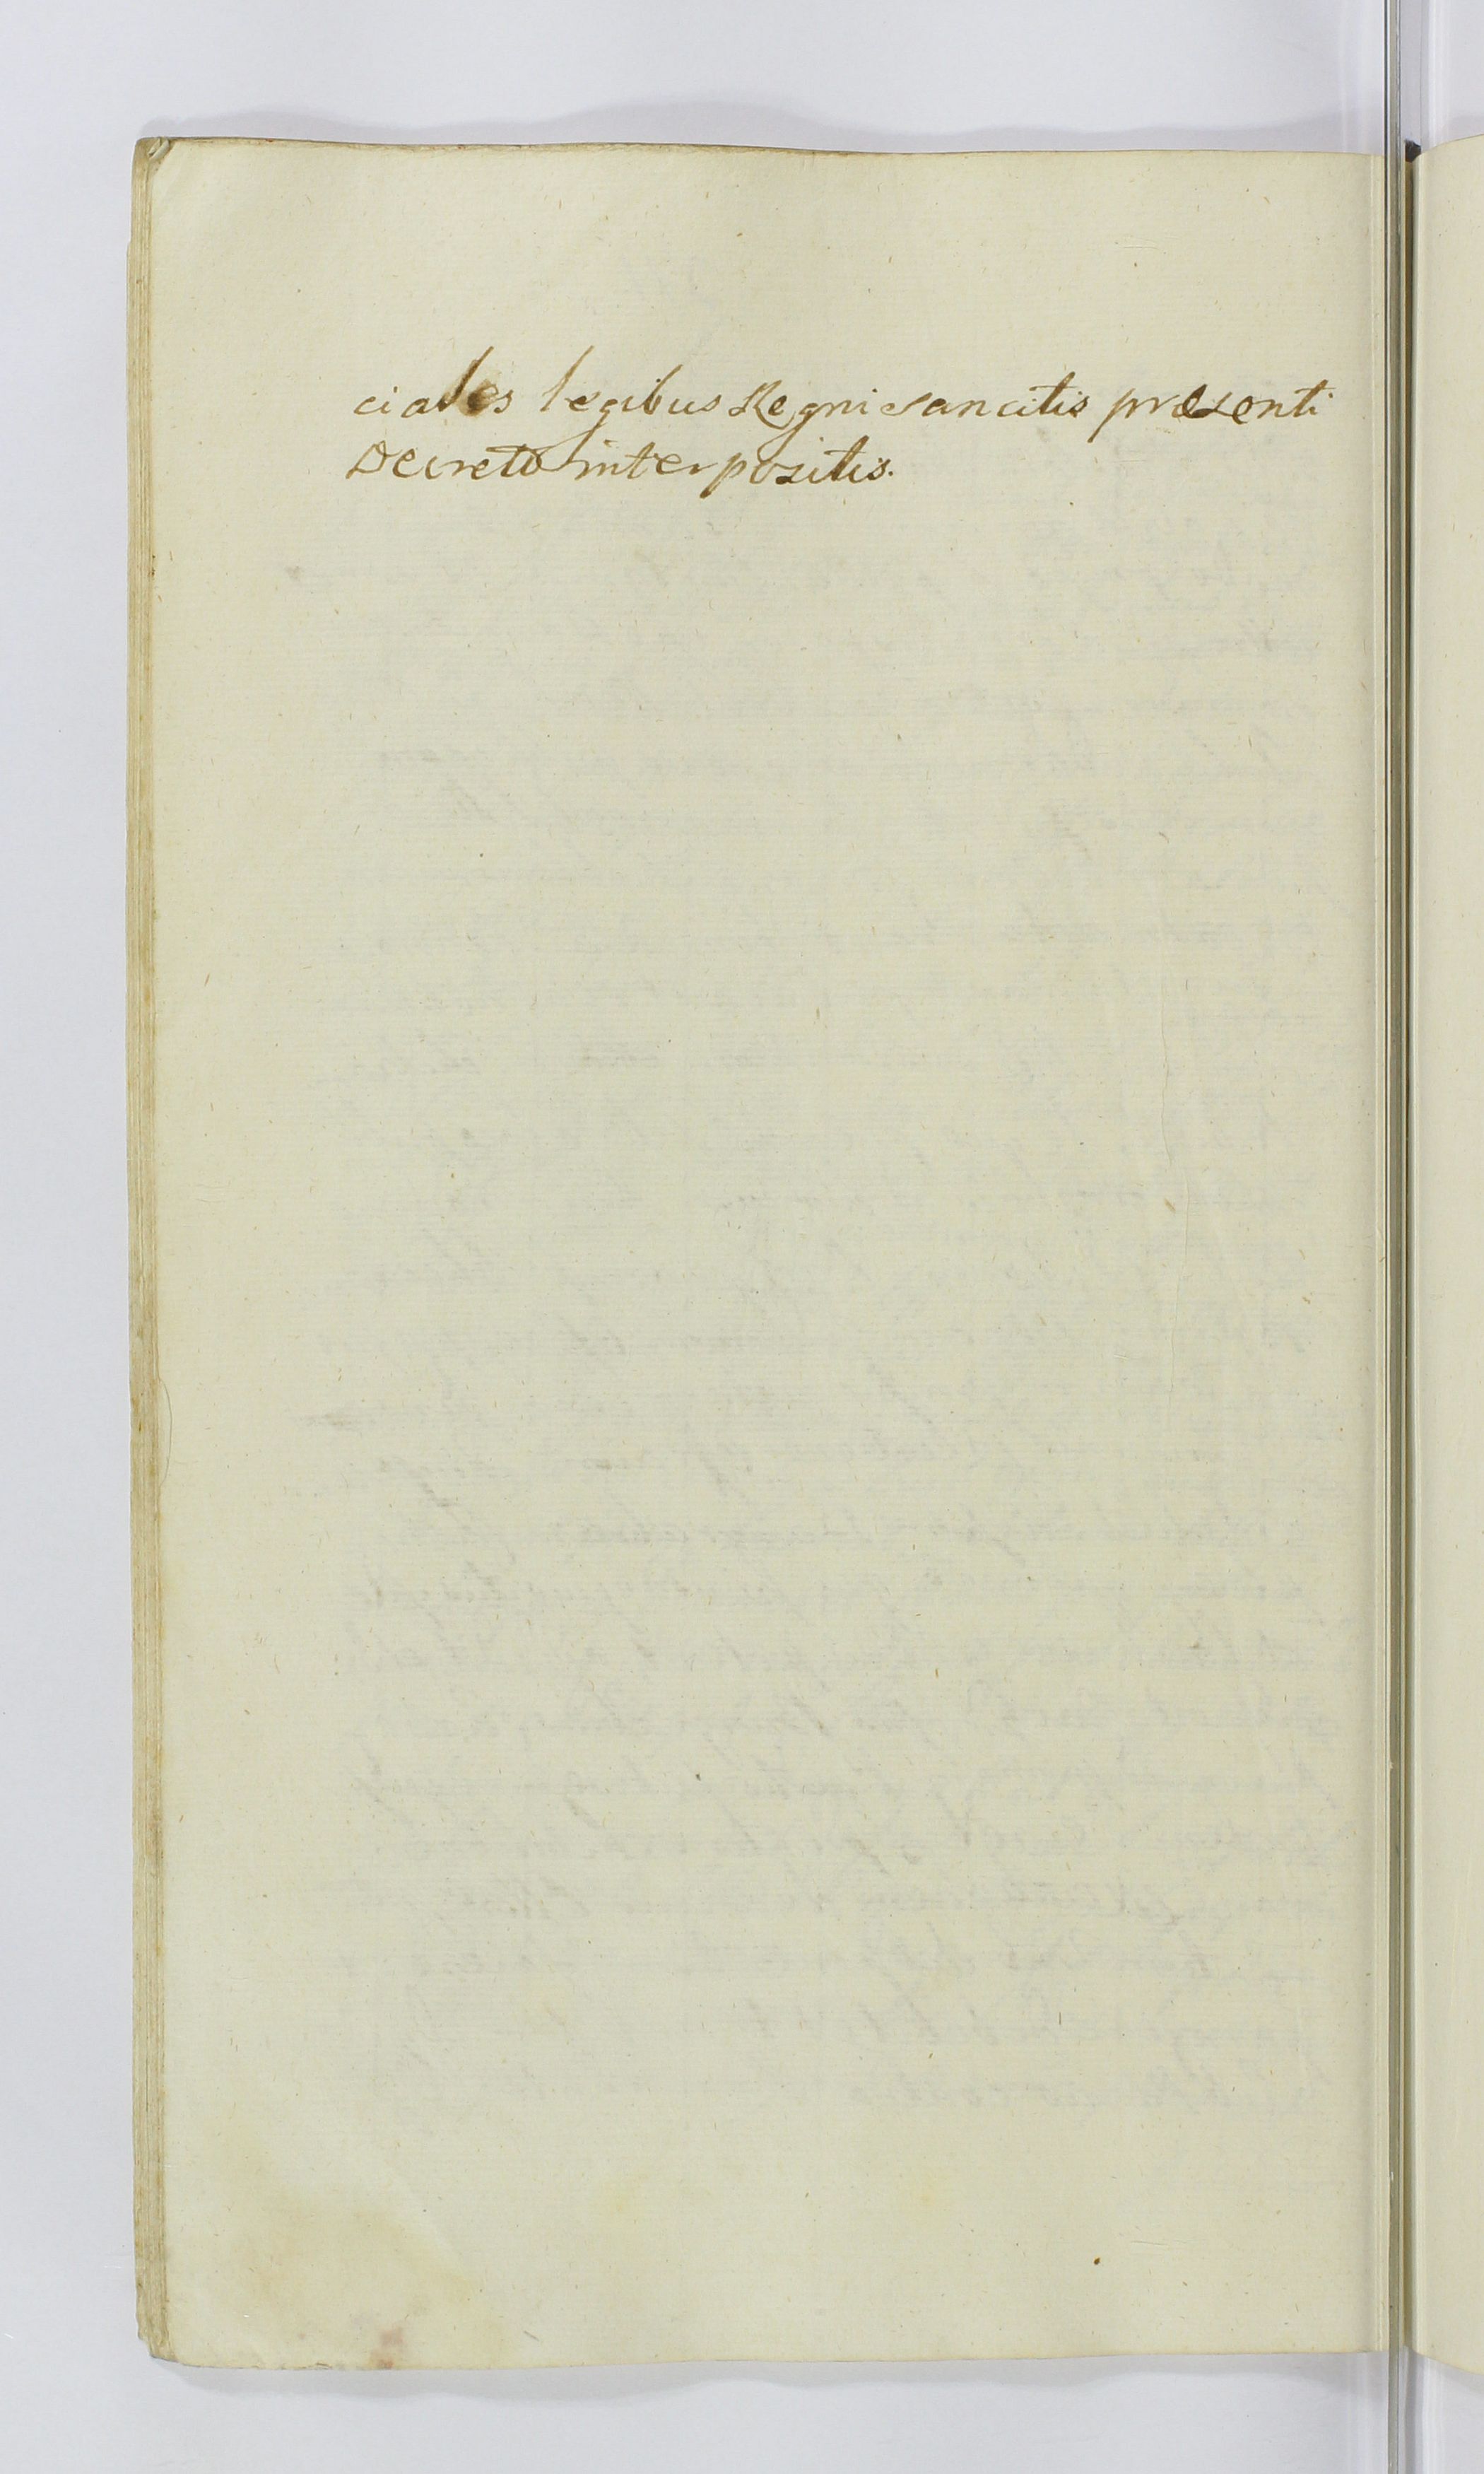 ciales legibus Regni sancitis præsenti
Decreto interpositis.